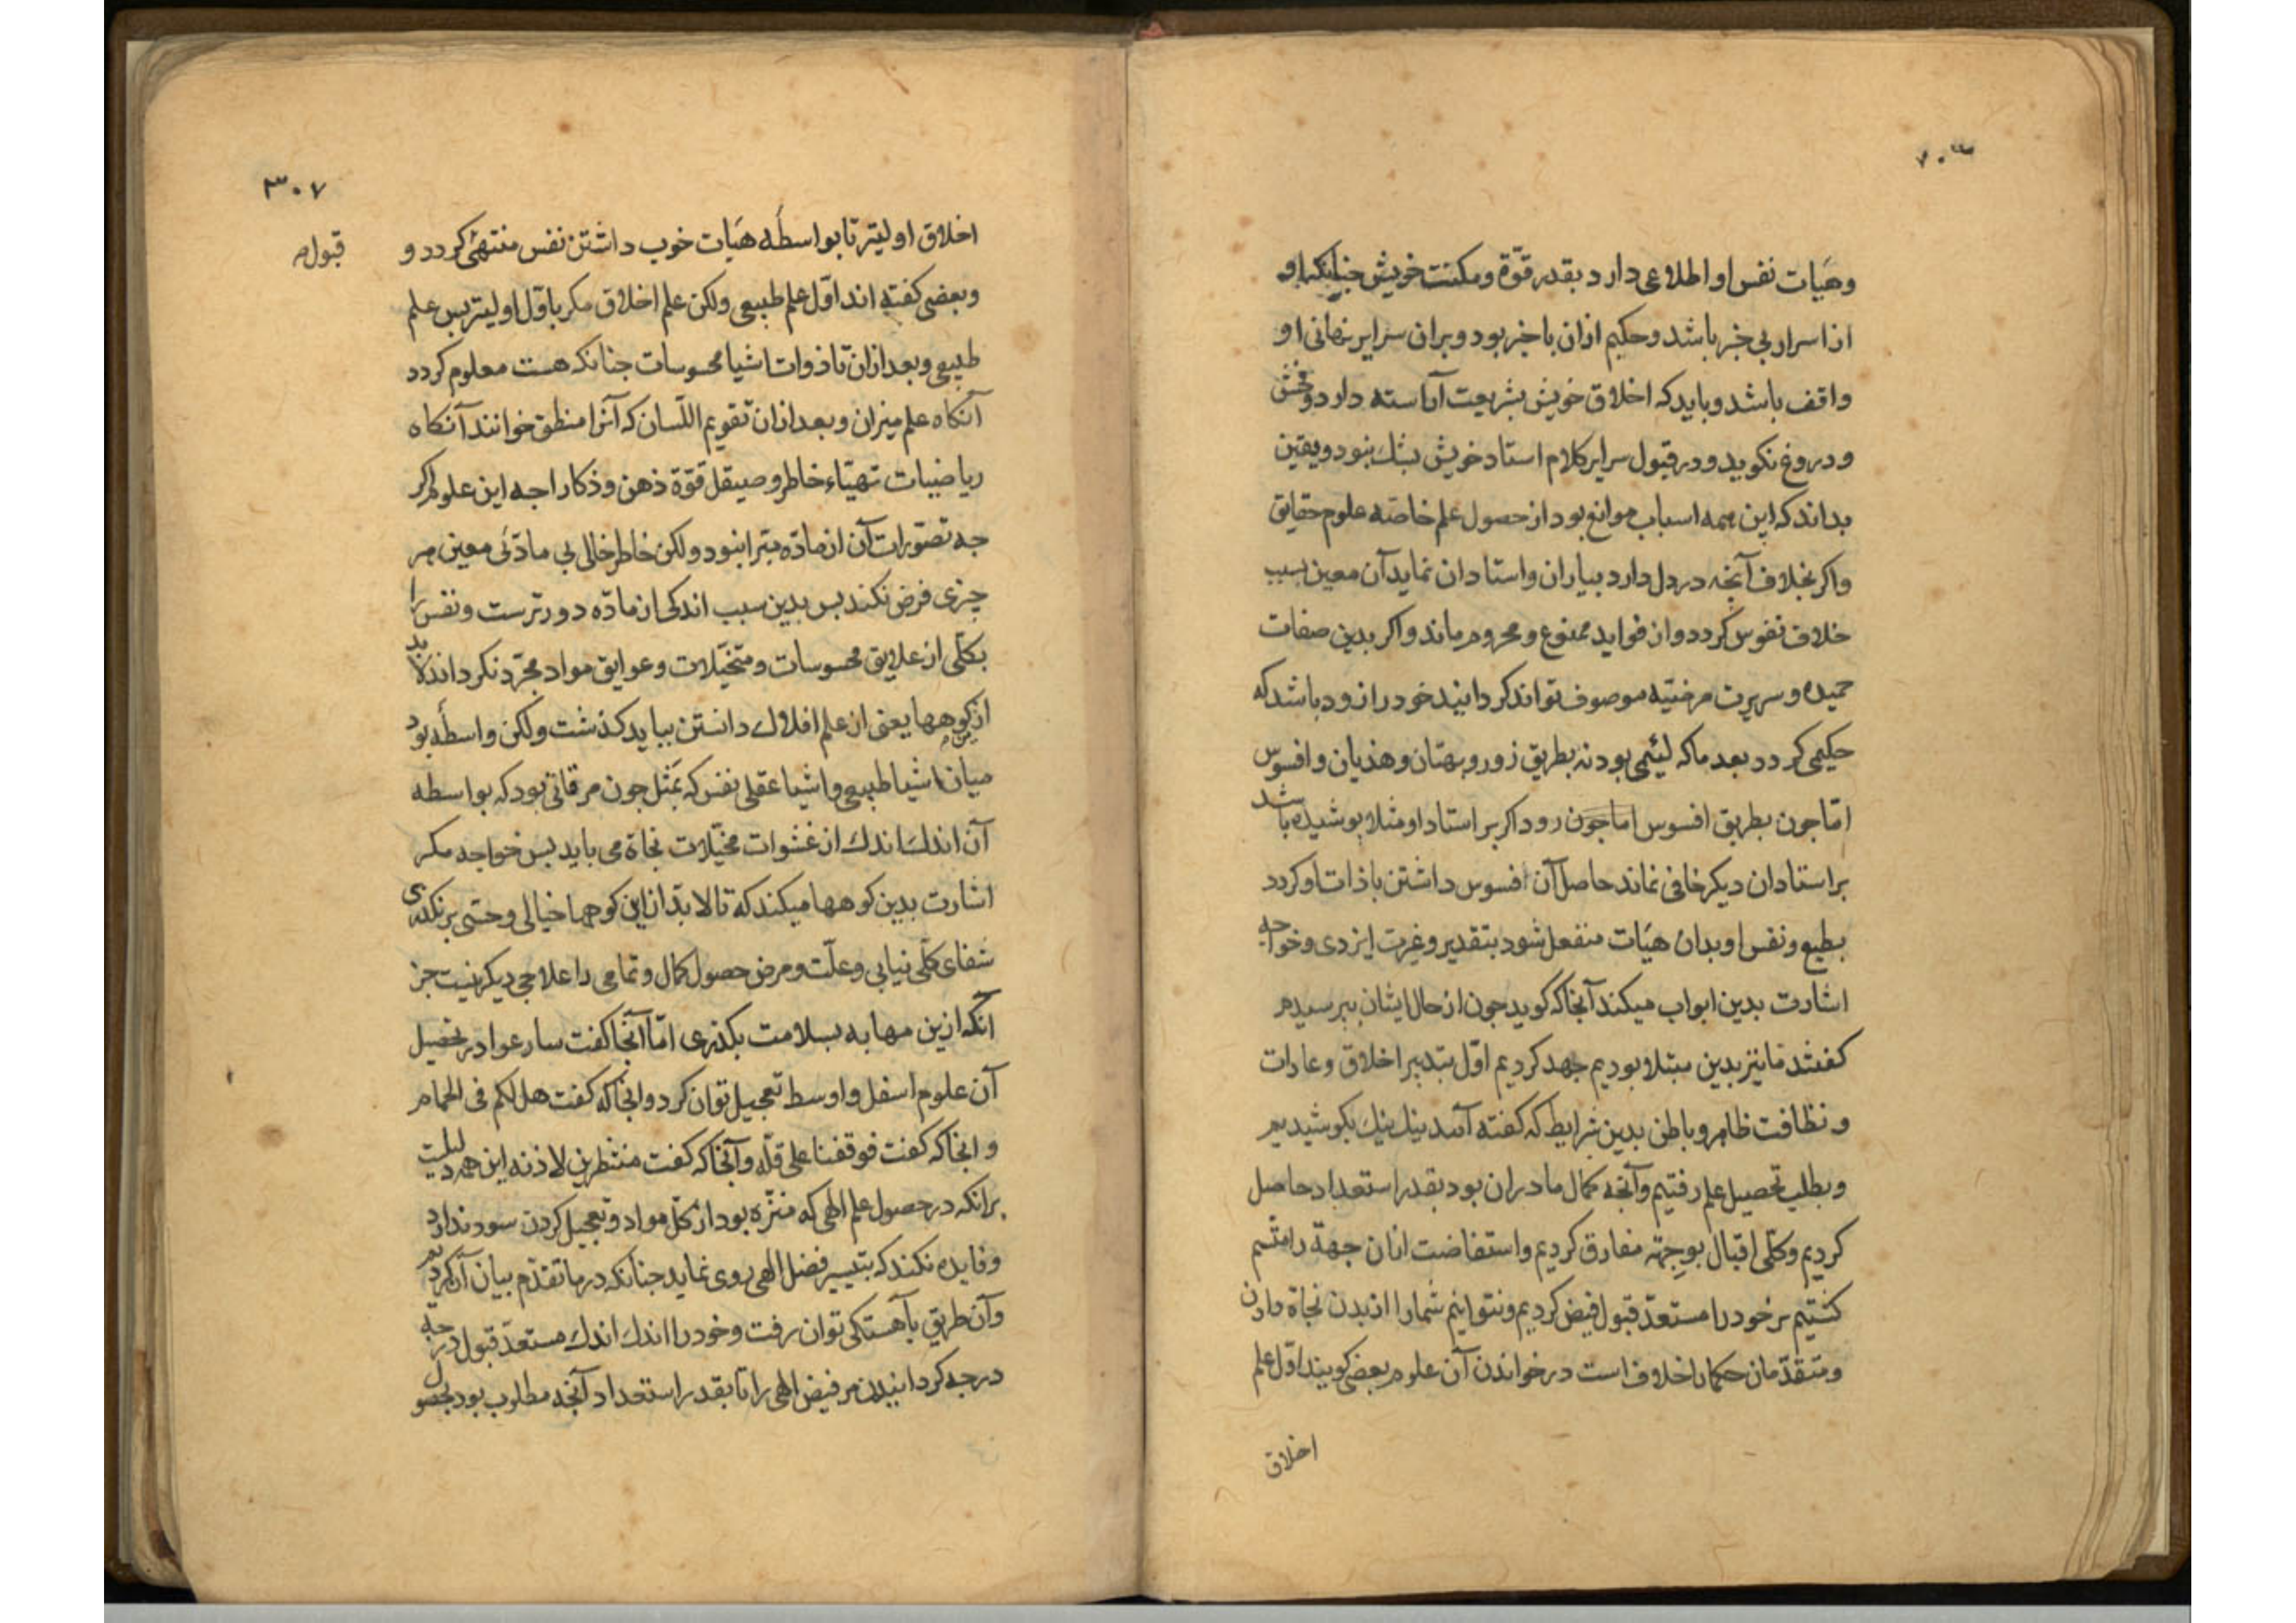 وهیات نفس او اطلاعی دارد بقدر قوّة ومکنت خویش چنانکه او
از اسرار بی خبر باشد وحکیم ازان باخبر بود وبران سرایر نهانی او
واقف باشد وباید که اخلاق خویش بشریعت آراسته دارد وفحش
ودروغ نکوید ودر قبول سرایر کلام استاد خویش بشك نبود ویقین
بداند که این همه اسباب موانع بود از حصول علم خاصّه علوم حقایق
واکر بخلاف آنچه در دل دارد بیاران واستادان نماید آن معین بسبب
خلاف نفوس کردد وان فواید ممنوع ومحروم ماند واکر بدین صفات
حمیده وسریرت مرضیّه موصوف تواند کردانید خود را زود باشد که
حکیمی کردد بعد ماکه لئیمی بود نه بطریق زور وبهتان وهذیان وافسوس
امّا جون بطریق افسوس اما جون رود اکر بر استاد او مثلا بوشیده باشد
بر استادان دیکر خافی نماند حاصل آن افسوس داشتن با ذات او کردد
بطبع ونفس او بدان هیات منفعل شود بتقدیر وغیرت ایزدی وخواجه
اشارت بدین ابواب میکند آنجا که کوید جون از حال ایشان ببرسیدم
کفتند ما نیز بدین مبتلا بودیم جهد کردیم اوّل بتدبیر اخلاق وعادات
ونظافت ظاهر وباطن بدین شرایط که کفته آمد نیك نیك بکوشیدیم
وبطلب تحصیل علم رفتیم وآنچه کمال ما دران بود بقدر استعداد حاصل
کردیم وکلّی اقبال بوجهة مفارق کردیم واستفاضت ازان جهة را
کشتیم مر خود را مستعدّ قبول فیض کردیم ونتوانیم شما را از بدن نجاة دادن
ومتقدّمان حکما را خلافست در خواندن آن علوم بعضی کویند اوّل علم
اخلاق
۳۰۷
قبول
اخلاق اولیتر تا بواسطه هیات خوب داشتن نفس منتهی کردد و
وبعضی کفته اند اوّل علم طبیعی ولکن علم اخلاق مکر باوّل اولیتر بس علم
طبیعی وبعد ازان تا ذوات اشیا محسوسات جنانکه هست معلوم کردد
آنکاه علم میزان وبعد ازان تقویم اللّسان که آنرا منطق خوانند آنکاه
ریاضیات تهیّاء خاطر وصیقل قوّة ذهن وذکا را جه این علوم اکر
جه تصوّرات آن از مادّه مبرا نبود ولکن خاطر خالی بی مادّئی معین مر
چیزی فرض نکند بس بدین سبب اندکی از مادّه دورترست ونفس را
بکلّی از علایق محسوسات ومتخیّلات وعوایق مواد مجرّد نکرداند لابد
ازین کوهها یعنی از علم افلاك دانستن بباید کذشت ولکن واسطه بود
میان اشیا طبیعی واشیا عقلی نفس که بمثل جون مرقاتی بود که بواسطه
آن اندك اندك از غشوات مخیّلات نجاة می باید بس خواجه مکر
اشارت بدین کوهها میکند که تا لابدّ ازین کوهها خیالی وحسّی برنکذری
شفای کلّی نیابی وعلّت ومرض حصول کمال وتمامی را علاجی دیکر نیست جز
آنکه ازین مهابه بسلامت بکذری امّا آنجا کفت سارعوا در تحصیل
آن علوم اسفل واوسط تعجیل توان کرد وانجا که کفت هل لکم فی الحمام
وانجا که کفت فوقفنا علی قلّه وآنجا که کفت منتظرین لاذنه این همه دلیلست
برانکه در حصول علم الهی که منزّه بود از کلّ مواد وتعجیل کردن سود ندارد
وفایده نکند که بتیسیر فضل الهی روی نماید جنانکه در ما تقدّم بیان آن کردیم
وآن طریق بآهستکی توان رفت وخود را اندك اندك مستعدّ قبول درجه
درجه کردانیدن مر فیض الهی را تا بقدر استعداد آنچه مطلوب بود بحصول